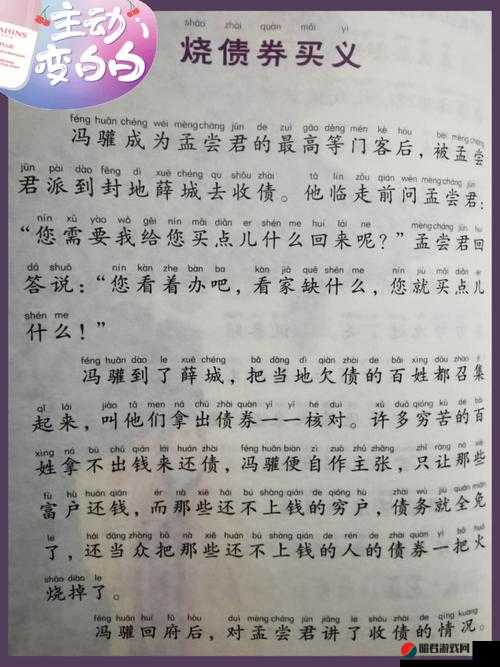 主动
变白白
shāo zhài quàn mǎi yì
烧债券买义
féng huān chéng wéi mèng cháng jūn de zuì gāo děng mén kè hòu bèi mèng cháng
冯驩成为孟尝君的最高等门客后，被孟尝
jūn pài dào fēng dì xuē chéng qù shōu zhài tā lín zǒu qián wèn mèng cháng jūn
君派到封地薛城去收债。他临走前问孟尝君：
nín xū yào wǒ gěi nín mǎi diǎn er shén me huí lái ne mèng cháng jūn huí
“您需要我给您买点儿什么回来呢？”孟尝君回
dá shuō nín kàn zhe bàn ba kàn jiā quē shén me nín jiù mǎi diǎn er
答说：“您看着办吧，看家缺什么，您就买点儿
shén me
什么！”
féng huān dào le xuē chéng bǎ dāng dì qiàn zhài de bǎi xìng dōu zhào jí
冯驩到了薛城，把当地欠债的百姓都召集
qǐ lái jiào tā men ná chū zhài quàn yī yī hé duì xǔ duō qióng kǔ de bǎi
起来，叫他们拿出债券一一核对。许多穷苦的百
xìng ná bù chū qián lái huán zhài féng huān biàn zì zuò zhǔ zhāng zhǐ ràng nà xiē
姓拿不出钱来还债，冯驩便自作主张，只让那些
fù hù huán qián ér nà xiē huán bú shàng qián de qióng hù zhài wù jiù quán miǎn
富户还钱，而那些还不上钱的穷户，债务就全免
le hái dāng zhòng bǎ nà xiē huán bú shàng qián de rén de zhài quàn yì bǎ huǒ
了，还当众把那些还不上钱的人的债券一把火
shāo diào le
烧掉了。
féng huān huí fǔ hòu duì mèng cháng jūn jiǎng le shōu zhài de qíng kuàng
冯驩回府后，对孟尝君讲了收债的情况。